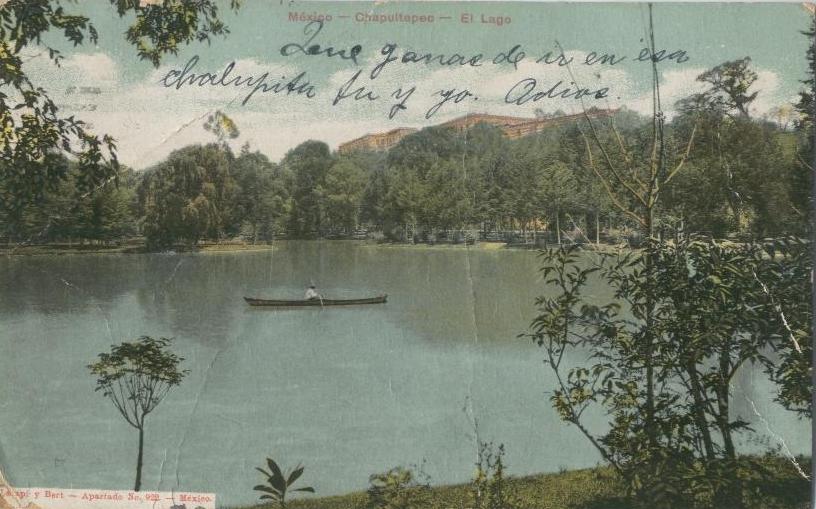 México — Chapultepec — El Lago
Que ganas de ir en esa
chalupita tu y yo. Adios.
y Bert — Apartado No. 922. — México.